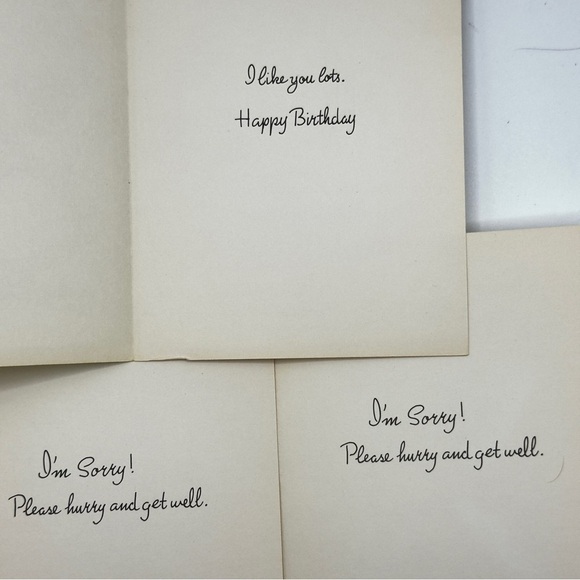 I like you lots.
Happy Birthday
I'm Sorry!
Please hurry and get well.
I'm Sorry!
Please hurry and get well.